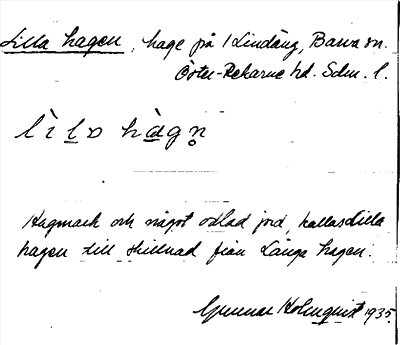 Lilla hagen, hage på 1 Lindäng, Barva sn.
Öster-Rekarne hd. Sdm. l.
lìlo hàgn̥
Hagmark och något odlad jord, kallas Lilla
hagen till skillnad från Långa hagen.
Gunnar Holmquist 1935.